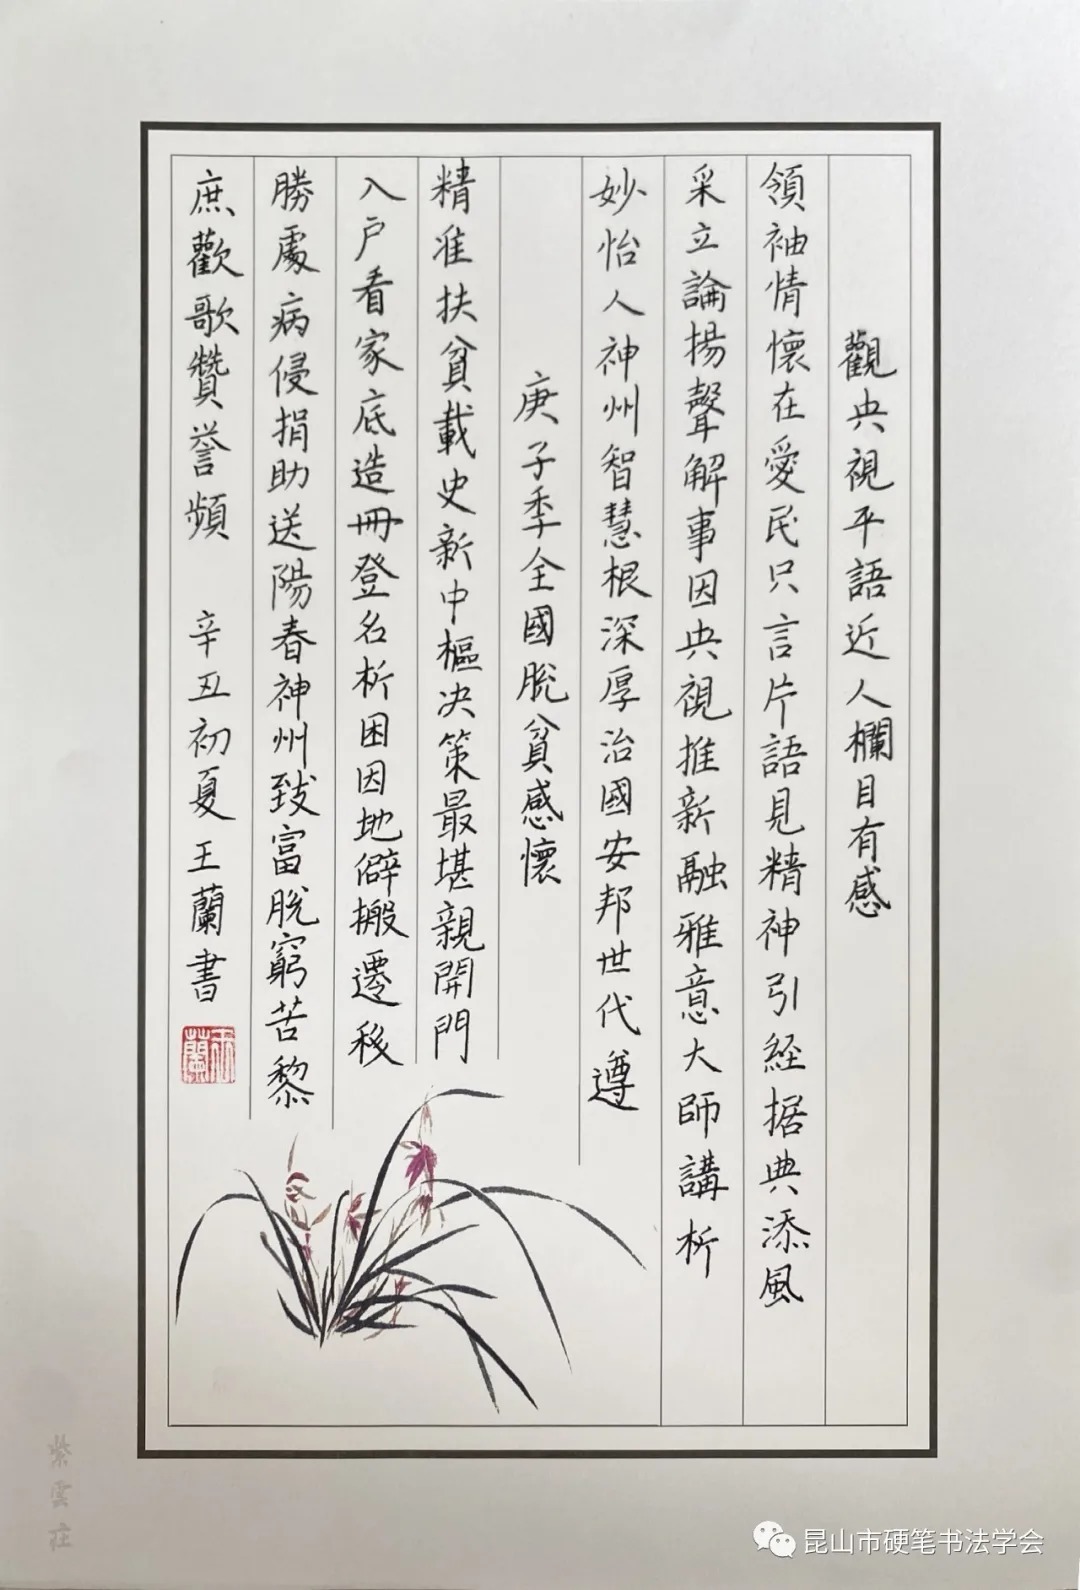 觀央視平語近人欄目有感
領袖情懷在愛民只言片語見精神引經据典添風
采立論揚聲解事因央視推新融雅意大師講析
妙怡人神州智慧根深厚治國安邦世代遵
庚子季全國脫貧感懷
精准扶貧載史新中樞决策最堪親開門
入户看家底造冊登名析困因地僻搬遷移
勝處病侵捐助送陽春神州致富脫窮苦黎
庶歡歌贊誉頻 辛丑初夏王蘭書
王蘭
紫雲莊
昆山市硬笔书法学会